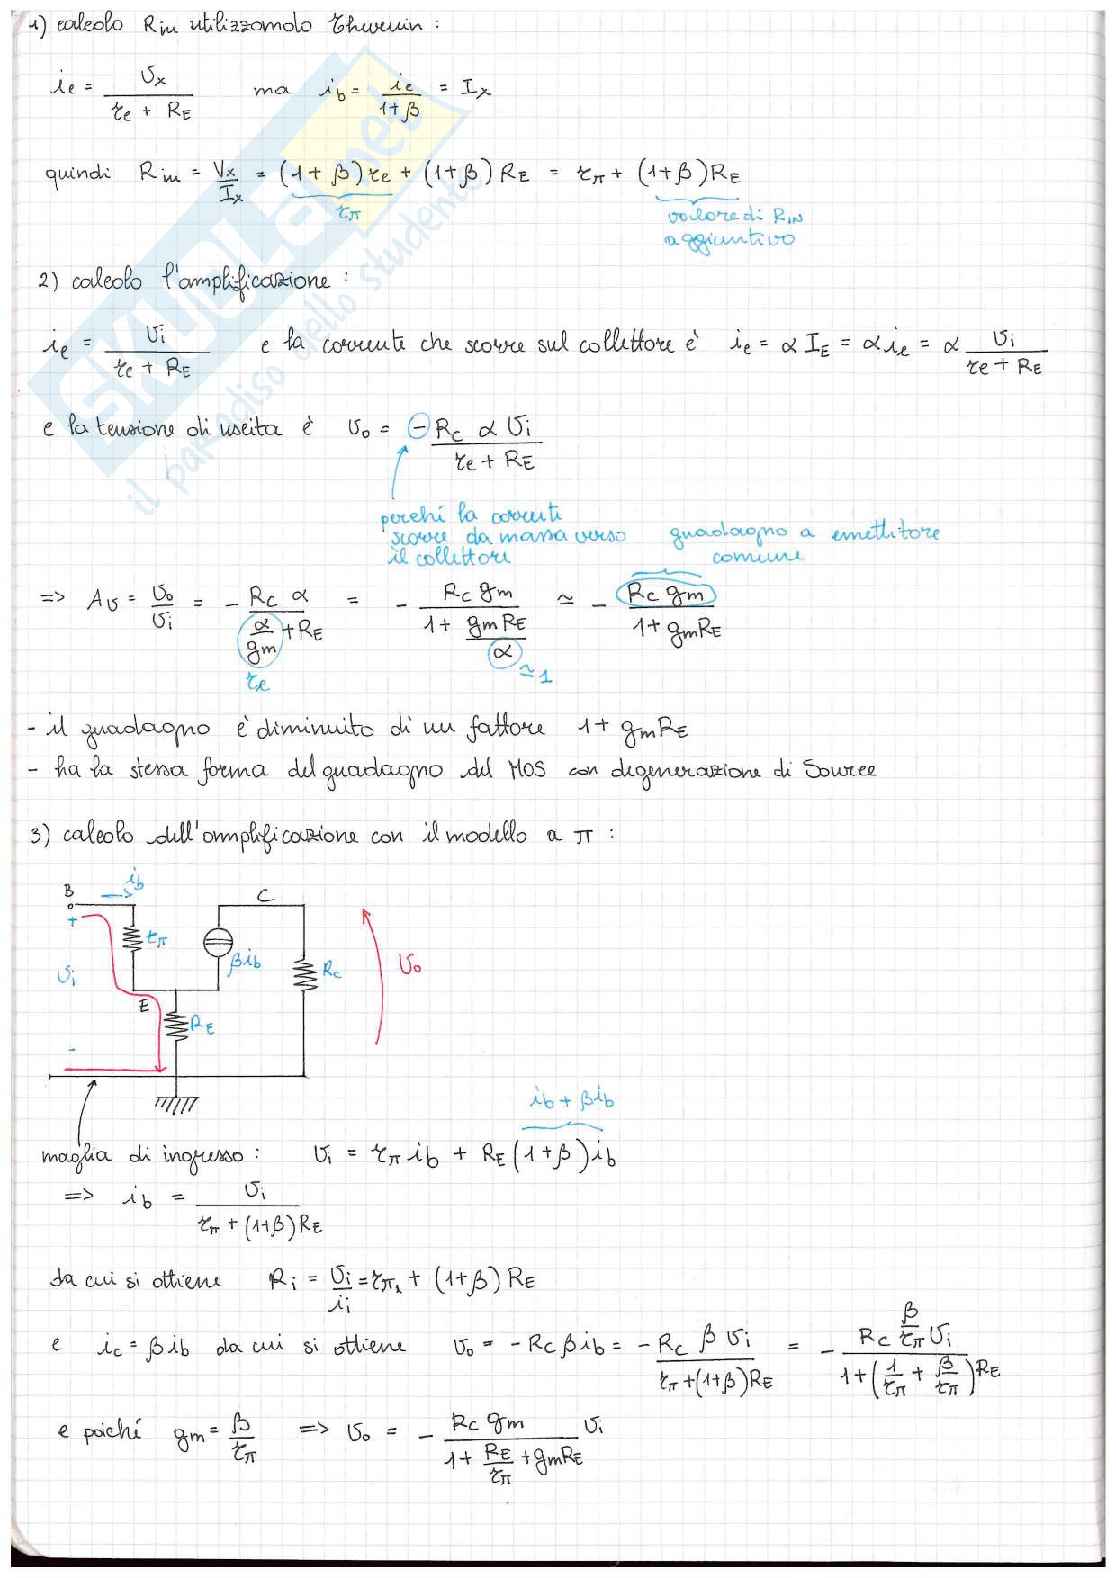 1) calcolo Rin utilizzando Thevenin :
ie = vx / (re + RE) ma ib = ie / (1+β) = Ix
quindi Rin = Vx / Ix = (1+β)re + (1+β)RE = rπ + (1+β)RE
rπ
valore di RIN
aggiuntivo
2) calcolo l'amplificazione :
ie = vi / (re + RE) e la corrente che scorre sul collettore è ic = α IE = α ie = α vi / (re + RE)
e la tensione di uscita è vo = - Rc α vi / (re + RE)
perché la corrente
scorre da massa verso
il collettore
guadagno a emettitore
comune
=> Av = vo / vi = - Rc α / (α/gm + RE) = - Rc gm / (1 + gmRE/α) ≃ - Rc gm / (1 + gmRE)
re
≃1
- il guadagno è diminuito di un fattore 1+ gmRE
- ha la stessa forma del guadagno del MOS con degenerazione di Source
3) calcolo dell'amplificazione con il modello a π :
ib
B
C
+
rπ
βib
vi
Rc
vo
E
RE
-
ib + βib
maglia di ingresso : vi = rπ ib + RE (1+β) ib
=> ib = vi / (rπ + (1+β)RE)
da cui si ottiene Ri = vi / ii = rπ + (1+β) RE
e ic = βib da cui si ottiene vo = -Rc β ib = - Rc β vi / (rπ + (1+β)RE) = - Rc β/rπ vi / (1 + (1/rπ + β/rπ)RE)
e poiché gm = β / rπ => vo = - Rc gm / (1 + RE/rπ + gmRE) vi
SKUOLA.net
il paradiso dello studente